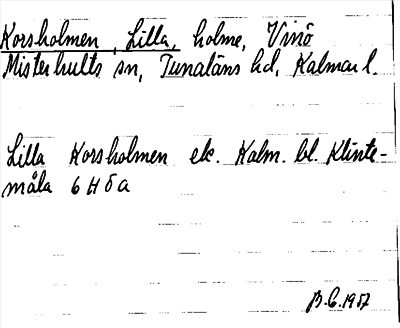 Korsholmen, Lilla, holme, Vinö
Misterhults sn, Tunaläns hd, Kalmar l.
Lilla Korsholmen ek. Kalm. bl. Klinte-
måla 6 H 5 a
B.C. 1957